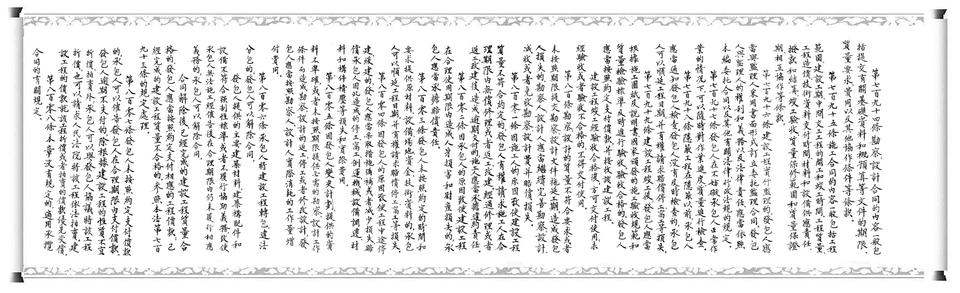 第七百九十四條 勘察、設計合同的内容一般包
括提交有關基礎資料和概預算等文件的期限、
質量要求、費用以及其他協作條件等條款。
第七百九十五條 施工合同的内容一般包括工程
範圍、建設工期、中間交工工程的開工和竣工時間、工程質量、
工程造價、技術資料交付時間、材料和設備供應責任、
撥款和結算、竣工驗收、質量保修範圍和質量保證
期、相互協作等條款。
第七百九十六條 建設工程實行監理的，發包人應
當與監理人采用書面形式訂立委托監理合同。發包
人與監理人的權利和義務以及法律責任，應當依照
本編委托合同以及其他有關法律、行政法規的規定。
第七百九十七條 發包人在不妨礙承包人正常作
業的情况下，可以隨時對作業進度、質量進行檢查。
第七百九十八條 隱蔽工程在隱蔽以前，承包人
應當通知發包人檢查。發包人没有及時檢查的，承包
人可以順延工程日期，并有權請求賠償停工、窩工等損失。
第七百九十九條 建設工程竣工後，發包人應當
根據施工圖紙及説明書、國家頒發的施工驗收規範和
質量檢驗標準及時進行驗收。驗收合格的，發包人
應當按照約定支付價款，并接收該建設工程。
建設工程竣工經驗收合格後，方可交付使用；未
經驗收或者驗收不合格的，不得交付使用。
第八百條 勘察、設計的質量不符合要求或者
未按照期限提交勘察、設計文件拖延工期，造成發包
人損失的，勘察人、設計人應當繼續完善勘察、設計，
减收或者免收勘察、設計費并賠償損失。
第八百零一條 因施工人的原因致使建設工程
質量不符合約定的，發包人有權請求施工人在合
理期限内無償修理或者返工、改建。經過修理或者
返工、改建後，造成逾期交付的，施工人應當承擔違約責任。
第八百零二條 因承包人的原因致使建設工程
在合理使用期限内造成人身損害和財産損失的，承
包人應當承擔賠償責任。
第八百零三條 發包人未按照約定的時間和
要求提供原材料、設備、場地、資金、技術資料的，承包
人可以順延工程日期，并有權請求賠償停工、窩工等損失。
第八百零四條 因發包人的原因致使工程中途停
建、緩建的，發包人應當采取措施彌補或者减少損失，賠
償承包人因此造成的停工、窩工、倒運、機械設備調遷、材
料和構件積壓等損失和實際費用。
第八百零五條 因發包人變更計劃，提供的資
料不準確，或者未按照期限提供必需的勘察、設計工作
條件而造成勘察、設計的返工、停工或者修改設計，發
包人應當按照勘察人、設計人實際消耗的工作量增
付費用。
第八百零六條 承包人將建設工程轉包、違法
分包的，發包人可以解除合同。
發包人提供的主要建築材料、建築構配件和
設備不符合强制性標準或者不履行協助義務，致使
承包人無法施工，經催告後在合理期限内仍未履行相應
義務的，承包人可以解除合同。
合同解除後，已經完成的建設工程質量合
格的，發包人應當按照約定支付相應的工程價款；已
經完成的建設工程質量不合格的，參照本法第七百
九十三條的規定處理。
第八百零七條 發包人未按照約定支付價款
的，承包人可以催告發包人在合理期限内支付價款。
發包人逾期不支付的，除根據建設工程的性質不宜
折價、拍賣外，承包人可以與發包人協議將該工程
折價，也可以請求人民法院將該工程依法拍賣。建
設工程的價款就該工程折價或者拍賣的價款優先受償。
第八百零八條 本章没有規定的，適用承攬
合同的有關規定。